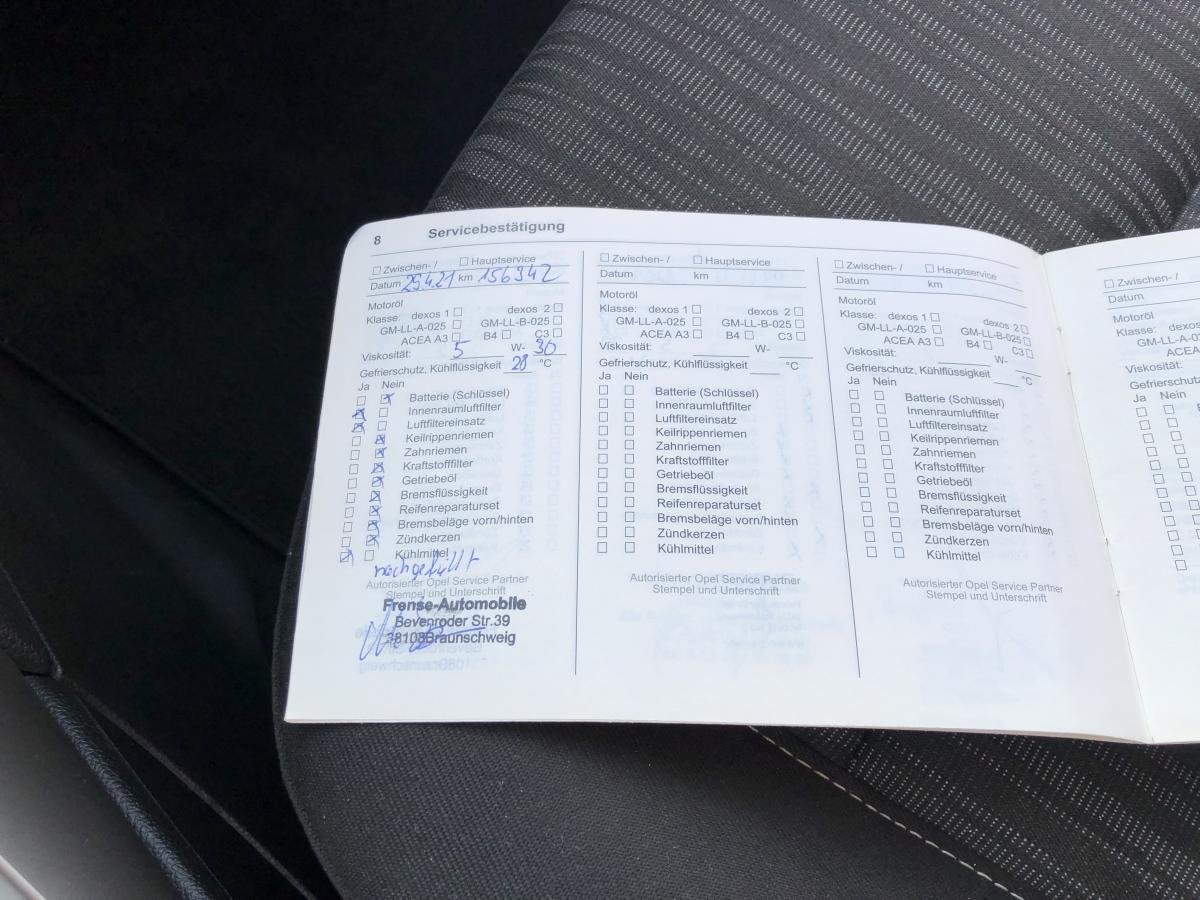 8 Servicebestätigung
☐ Zwischen- / ☐ Hauptservice
Datum 29.4.21 km 156942
Motoröl
Klasse: dexos 1 ☐ dexos 2 ☐
GM-LL-A-025 ☐ GM-LL-B-025 ☐
ACEA A3 ☐ B4 ☐ C3 ☐
Viskosität: 5 W- 30
Gefrierschutz, Kühlflüssigkeit 28 °C
Ja Nein
☐ ☒ Batterie (Schlüssel)
☒ ☐ Innenraumluftfilter
☒ ☐ Luftfiltereinsatz
☐ ☒ Keilrippenriemen
☐ ☒ Zahnriemen
☐ ☒ Kraftstofffilter
☐ ☒ Getriebeöl
☐ ☒ Bremsflüssigkeit
☐ ☒ Reifenreparaturset
☐ ☒ Bremsbeläge vorn/hinten
☐ ☒ Zündkerzen
☒ ☐ Kühlmittel
nachgefüllt
Autorisierter Opel Service Partner
Stempel und Unterschrift
Frense-Automobile
Bevenroder Str.39
38108Braunschweig
☐ Zwischen- / ☐ Hauptservice
Datum km
Motoröl
Klasse: dexos 1 ☐ dexos 2 ☐
GM-LL-A-025 ☐ GM-LL-B-025 ☐
ACEA A3 ☐ B4 ☐ C3 ☐
Viskosität: W-
Gefrierschutz, Kühlflüssigkeit °C
Ja Nein
☐ ☐ Batterie (Schlüssel)
☐ ☐ Innenraumluftfilter
☐ ☐ Luftfiltereinsatz
☐ ☐ Keilrippenriemen
☐ ☐ Zahnriemen
☐ ☐ Kraftstofffilter
☐ ☐ Getriebeöl
☐ ☐ Bremsflüssigkeit
☐ ☐ Reifenreparaturset
☐ ☐ Bremsbeläge vorn/hinten
☐ ☐ Zündkerzen
☐ ☐ Kühlmittel
Autorisierter Opel Service Partner
Stempel und Unterschrift
☐ Zwischen- / ☐ Hauptservice
Datum km
Motoröl
Klasse: dexos 1 ☐ dexos 2 ☐
GM-LL-A-025 ☐ GM-LL-B-025 ☐
ACEA A3 ☐ B4 ☐ C3 ☐
Viskosität: W-
Gefrierschutz, Kühlflüssigkeit °C
Ja Nein
☐ ☐ Batterie (Schlüssel)
☐ ☐ Innenraumluftfilter
☐ ☐ Luftfiltereinsatz
☐ ☐ Keilrippenriemen
☐ ☐ Zahnriemen
☐ ☐ Kraftstofffilter
☐ ☐ Getriebeöl
☐ ☐ Bremsflüssigkeit
☐ ☐ Reifenreparaturset
☐ ☐ Bremsbeläge vorn/hinten
☐ ☐ Zündkerzen
☐ ☐ Kühlmittel
Autorisierter Opel Service Partner
Stempel und Unterschrift
☐ Zwischen- /
Datum
Motoröl
Klasse: dexos
GM-LL-A-0
ACEA
Viskosität:
Gefrierschutz
Ja Nein